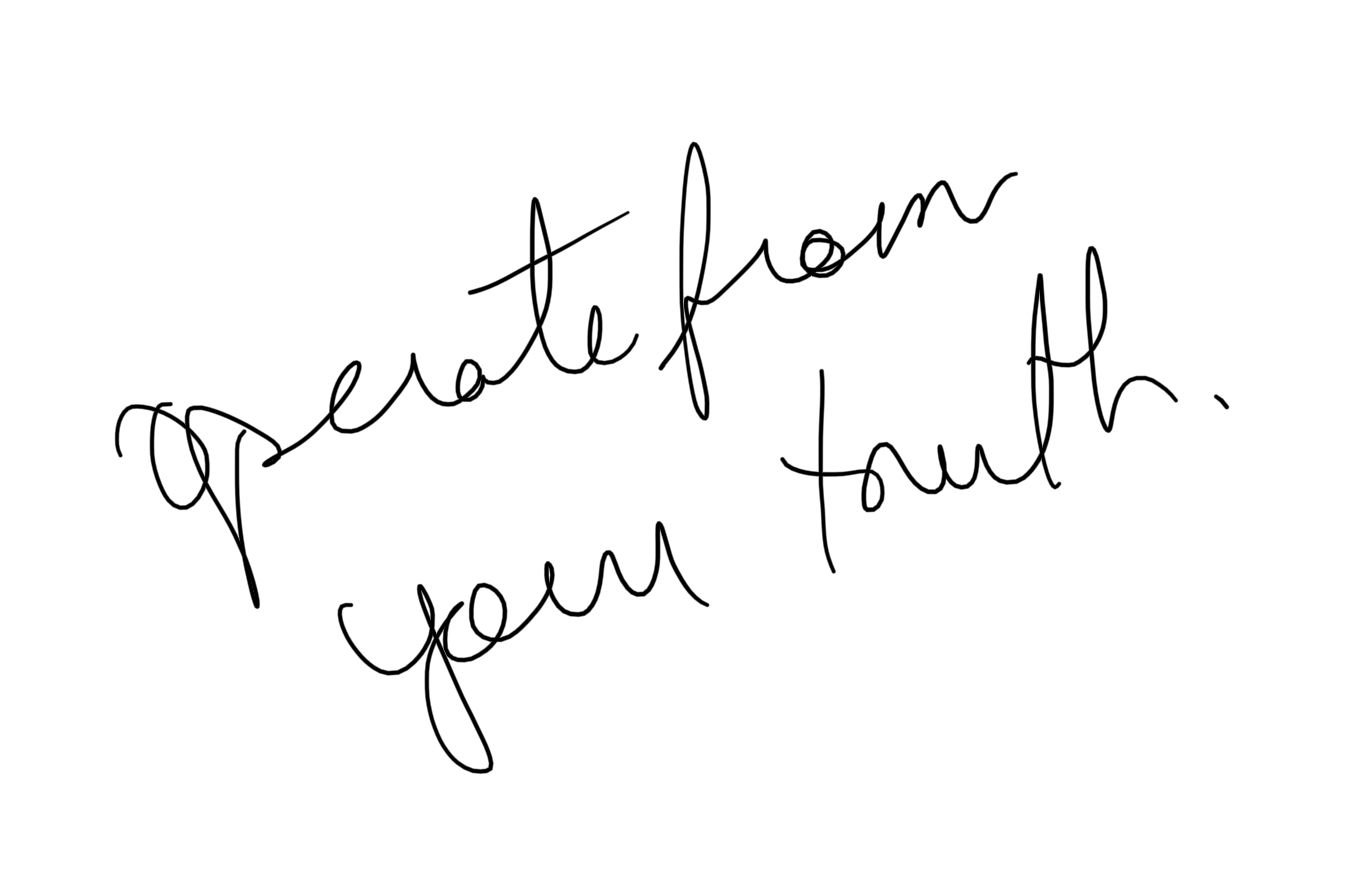 operate from
your truth.